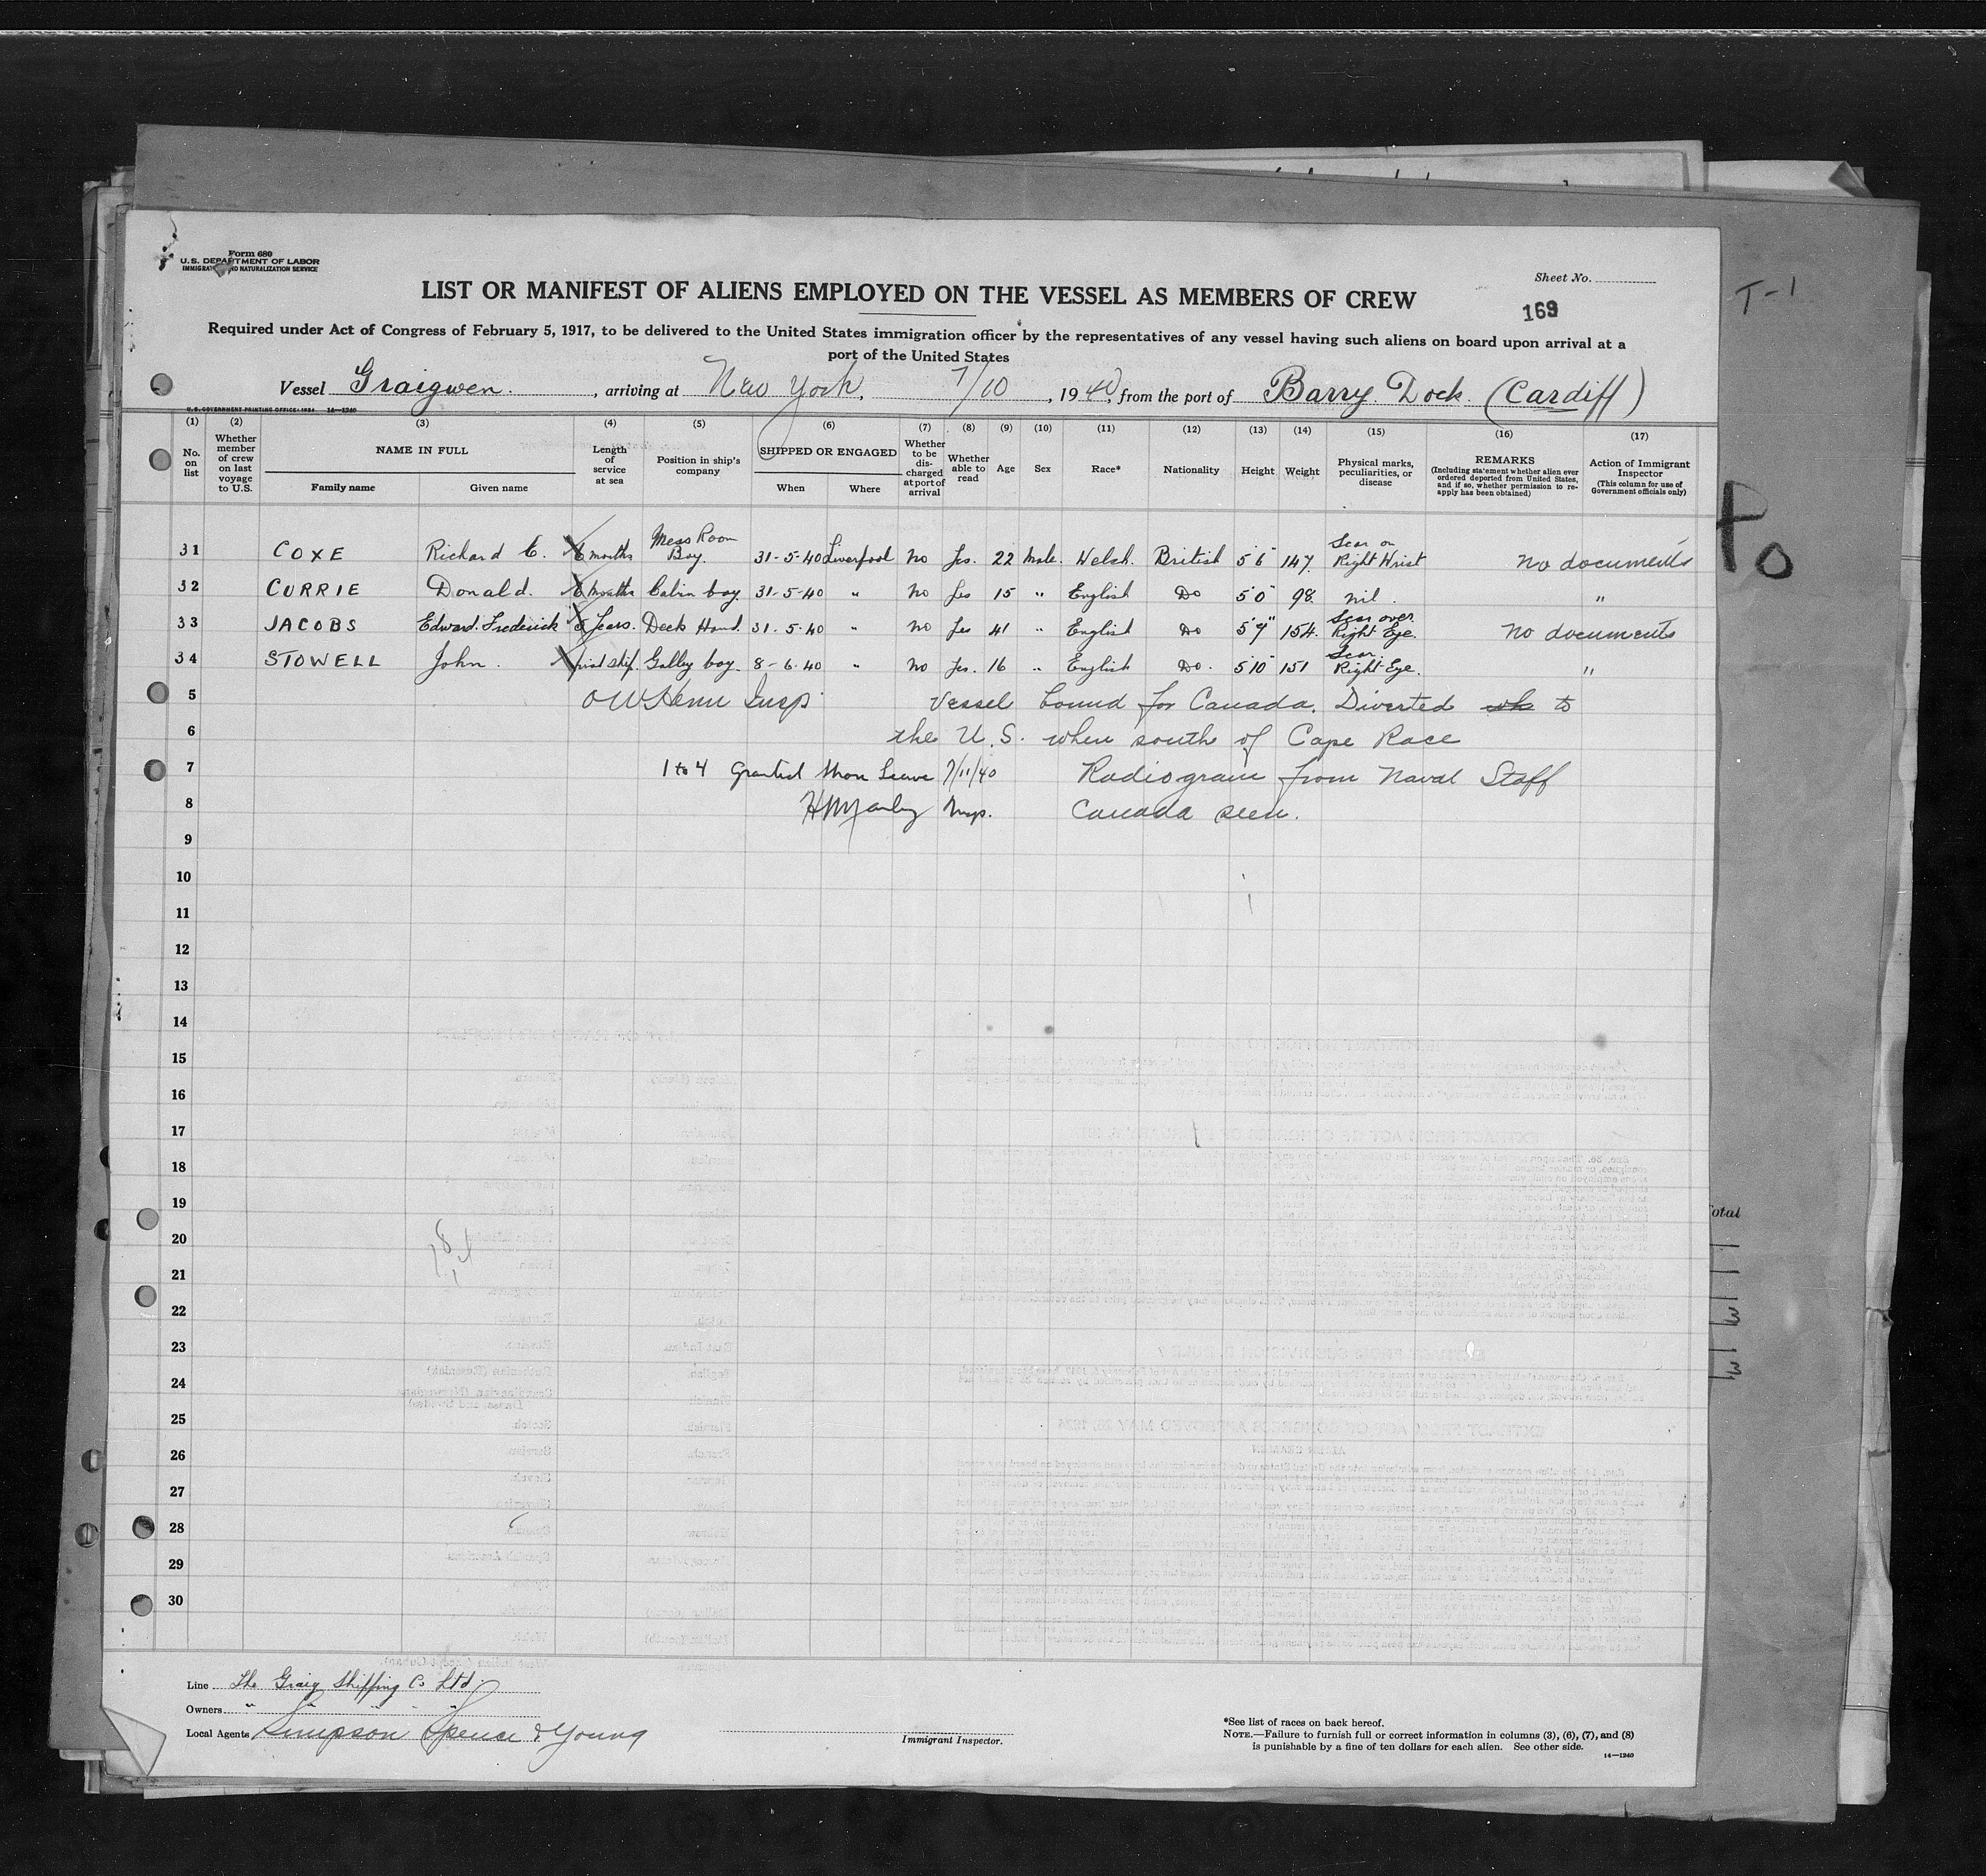 Form 680
U.S. DEPARTMENT OF LABOR
IMMIGRATION AND NATURALIZATION SERVICE
Sheet No.
LIST OR MANIFEST OF ALIENS EMPLOYED ON THE VESSEL AS MEMBERS OF CREW
169
T-1
Required under Act of Congress of February 5, 1917, to be delivered to the United States immigration officer by the representatives of any vessel having such aliens on board upon arrival at a
port of the United States
Vessel Graigwen. , arriving at New York, 7/10 , 1940, from the port of Barry Dock. (Cardiff)
U.S. GOVERNMENT PRINTING OFFICE: 1934 14—1240
(1) (2) (3) (4) (5) (6) (7) (8) (9) (10) (11) (12) (13) (14) (15) (16) (17)
No. on list Whether member of crew on last voyage to U.S. NAME IN FULL Length of service at sea Position in ship's company SHIPPED OR ENGAGED Whether to be discharged at port of arrival Whether able to read Age Sex Race* Nationality Height Weight Physical marks, peculiarities, or disease REMARKS (Including statement whether alien ever ordered deported from United States, and if so, whether permission to reapply has been obtained) Action of Immigrant Inspector (This column for use of Government officials only)
Family name Given name When Where
31 COXE Richard C. 6 months Mess Room Boy. 31-5-40 Liverpool No Yes. 22 Male. Welsh. British 5'6" 147. Scar on Right Wrist No documents
32 CURRIE Donald. 6 months Cabin boy. 31-5-40 " No Yes 15 " English Do 5'0" 98. nil. "
33 JACOBS Edward Frederick 5 Years. Deck Hand. 31-5-40 " No Yes 41 " English Do 5'9" 154. Scar over Right Eye. No documents
34 STOWELL John. First ship. Galley boy. 8-6-40 " No Yes. 16 " English Do. 5'10" 151 Scar. Right Eye. "
5 Insp Vessel bound for Canada. Diverted to
6 the U.S. when south of Cape Race
7 1 to 4 Granted Shore Leave 7/11/40 Radiogram from Naval Staff
8 Insp. Canada seen.
9
10
11
12
13
14
15
16
17
18
19
20
21
22
23
24
25
26
27
28
29
30
Total
Line The Graig Shipping Co Ltd
Owners " " " "
Local Agents Simpson Spence & Young
Immigrant Inspector.
*See list of races on back hereof.
NOTE.—Failure to furnish full or correct information in columns (3), (6), (7), and (8)
is punishable by a fine of ten dollars for each alien. See other side.
14—1240